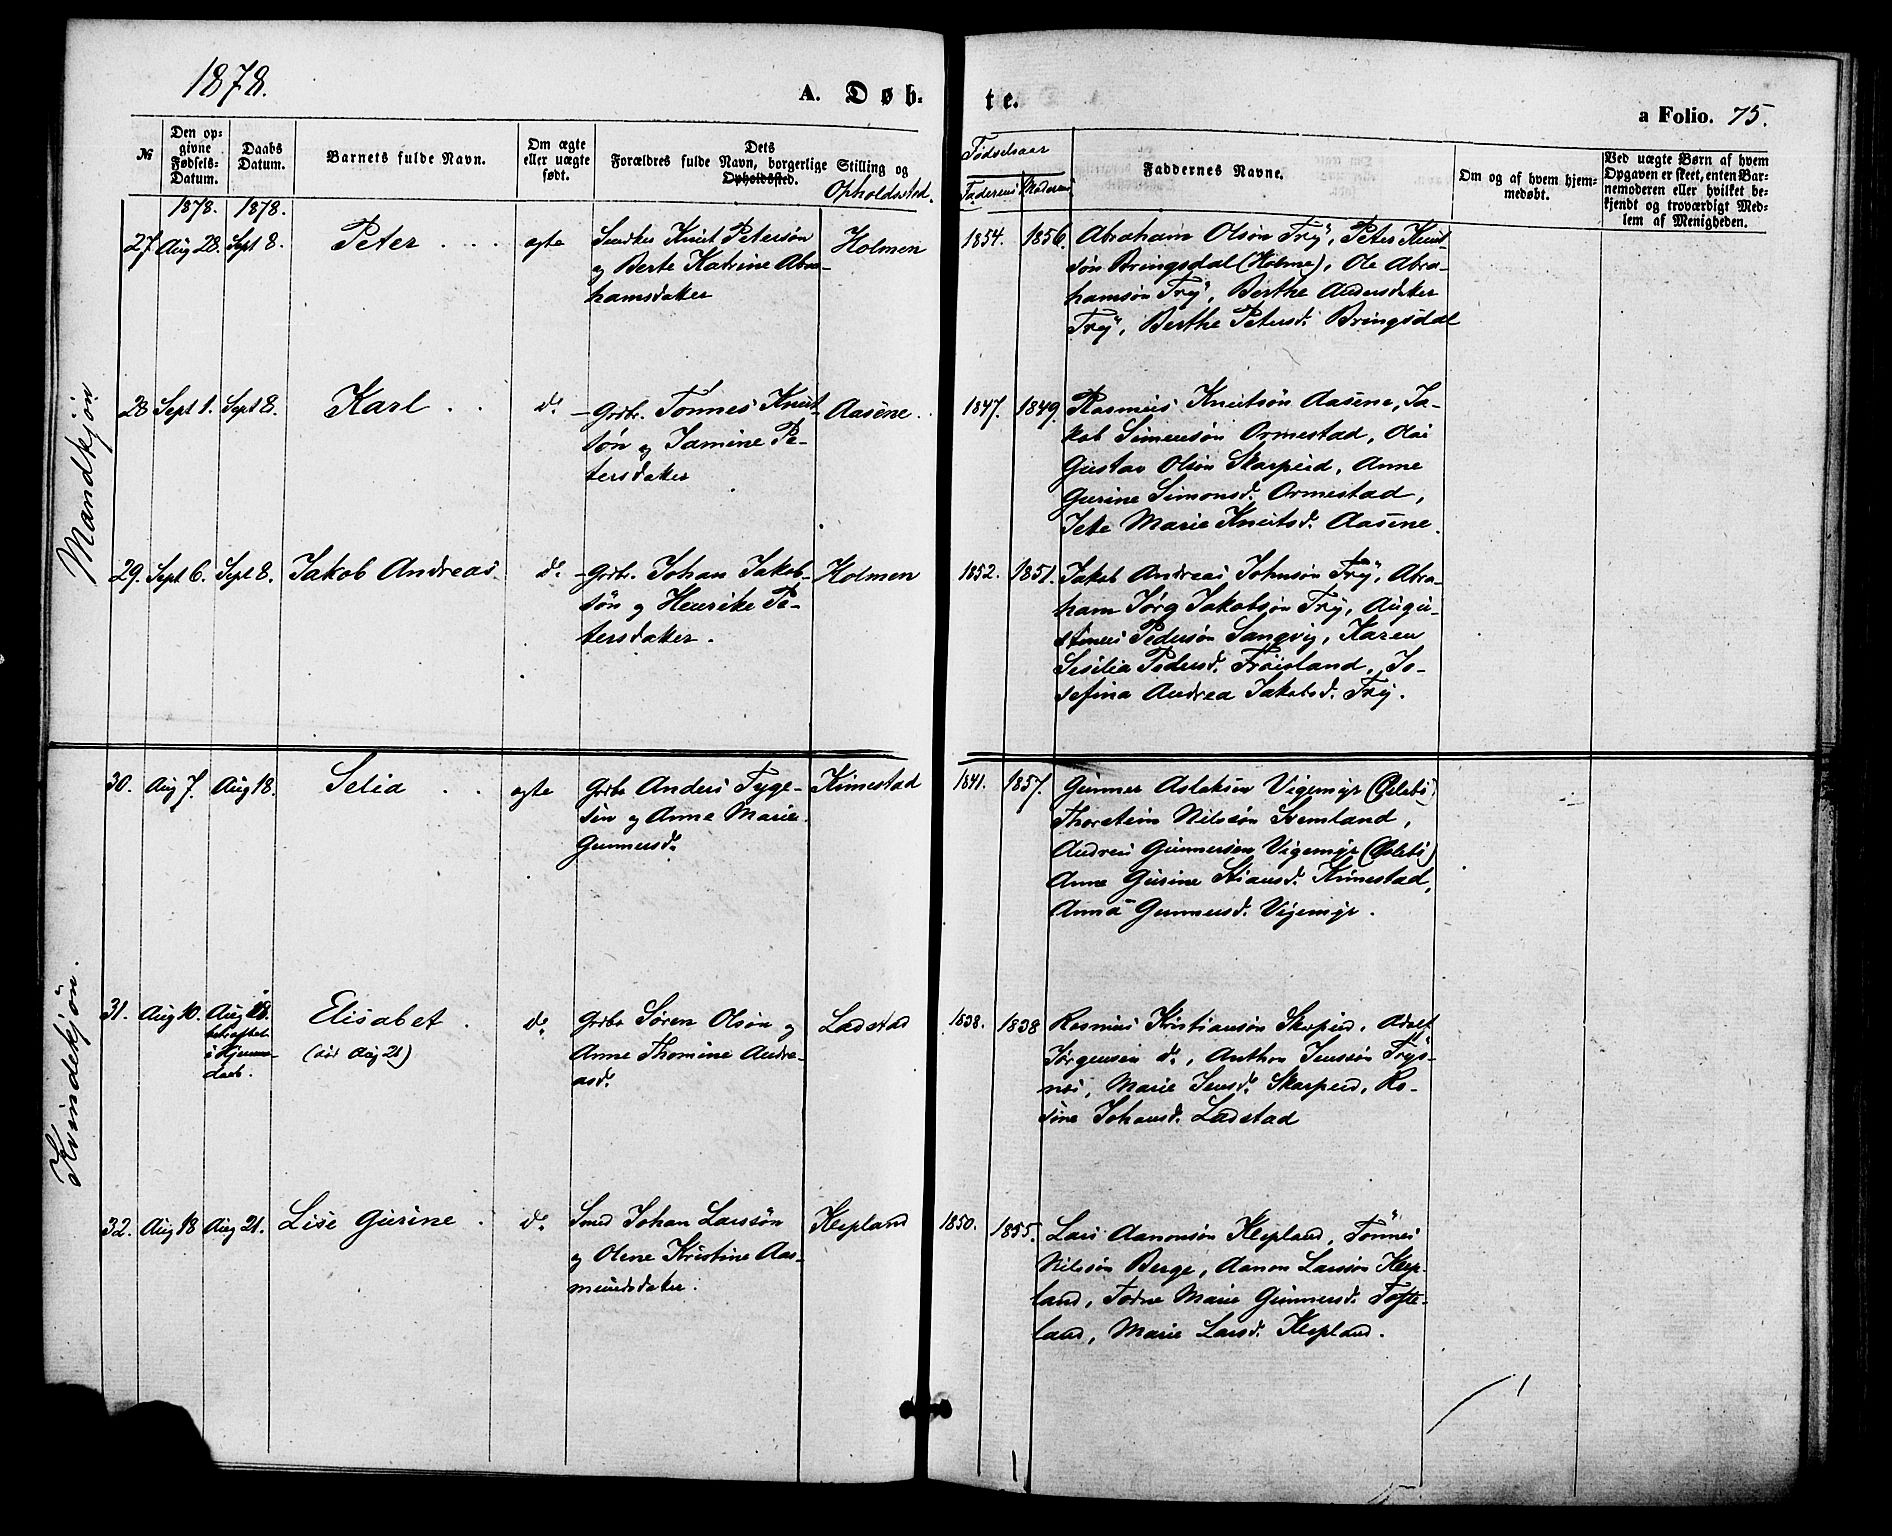 1878.
A. Døb-
te.
a Folio. 75.
№
Den op-
givne
Fødsels-
Datum.
Daabs
Datum.
Barnets fulde Navn.
Om ægte
eller uægte
født.
Dets
Forældres fulde Navn, borgerlige Stilling og
Opholdssted.
Opholdssted.
Fødselsaar
Faderens
Moderens
Faddernes Navne.
Om og af hvem hjem-
medøbt.
Ved uægte Børn af hvem
Opgaven er skeet, enten Bar-
nemoderen eller hvilket be-
kjendt og troværdigt Med-
lem af Menigheden.
Mandkjøn
1878. 1878.
27 Aug 28. Sept 8. Peter ægte
Knut Petersøn
og Berte Katrine Abra-
hamsdater
Holmen
1854. 1856.
Abraham Olsøn Try, Peter Knut-
søn Bringsdal (Holme), Ole Abra-
hamsøn Try, Berthe Andersdater
Try, Berthe Petersd. Bringsdal
28 Sept 1. Sept 8. Karl do
Grdbr. Tønnes Knut-
søn og Jamine Pe-
tersdater
Aasene
1847. 1849.
Rasmus Knutsøn Aasene, Ja-
kob Simensøn Ormestad, Olai
Gustav Olsøn Skarpeid, Anne
Gurine Simonsd. Ormestad,
Marie Knutsd. Aasene
29. Sept 6. Sept 8. Jakob Andreas do
Grdbr. Johan Jakob-
søn og Henrike Pe-
tersdater.
Holmen
1852. 1851.
Jakob Andreas Johnsøn Try, Abra-
ham Jørg Jakobsøn Try, Augu-
stinus Pedersøn Sangvig, Karen
Sesilia Pedersd. Frøisland, Jo-
sefina Andrea Jakobsd. Try.
Kvindekjøn.
30. Aug 7. Aug 18. Selia ægte
Grdbr Anders Tyge-
sen og Anne Marie
Gunnersd.
Kimestad
1841. 1857.
Gunner Aslaksen Vigemyr (Øslebø)
Thorstein Nilssøn
Andreas Gunnersen Vigemyr (Øslebø)
Anne Gurine Kimestad,
Anna Gunnersd. Vigemyr.
31. Aug 10. Aug 18.
bekræftet
i Hjemme-
daab.
Elisabet
(død Aug 21)
do
Grdbr Søren Olsøn og
Anne Thomine Andre-
asd.
Ladstad
1838. 1838
Rasmus Kristiansøn Skarpeid, Adolf
Jørgensen do, Anthon Jenssøn Trys-
nes, Marie Jensd. Skarpeid, Ro-
sine Johansd. Ladstad
32. Aug 18 Aug 21. Lise Gurine do
Smed Johan Larssøn
og Olene Kristine Aas-
mundsdater.
Klepland
1850. 1855.
Lars Aanonsøn Klepland, Tønnes
Nilssøn Berge, Aanon Larssøn Klep-
land, Todne Marie Gunnersd. Tofte-
land, Marie Larsd. Klepland.